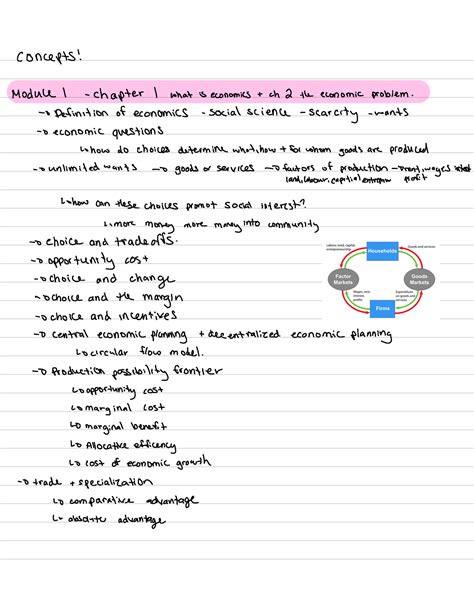 Concepts!
Module 1 - chapter 1 what is economics + ch 2 the economic problem.
→ Definition of economics - social science - scarcity - wants
→ economic questions
↳ how do choices determine what, how + for whom goods are produced
→ unlimited wants → goods or services → factors of production → rent, wages
land, labour, capital, profit
↳ how can these choices promot social interest?
↳ more money more money into community
→ choice and tradeoffs.
→ opportunity cost
→ choice and change
→ choice and the margin
→ choice and incentives
→ central economic planning + decentralized economic planning
↳ circular flow model.
→ Production possibility frontier
↳ opportunity cost
↳ marginal cost
↳ marginal benefit
↳ Allocative efficency
↳ cost of economic growth
→ trade + specialization
↳ comparative advantage
↳ absolute advantage
Labour, land, capital, entrepreneurship
Households
Goods and services
Factor Markets
Goods Markets
Wages, rent, interest, profits
Expenditure on goods and services
Firms